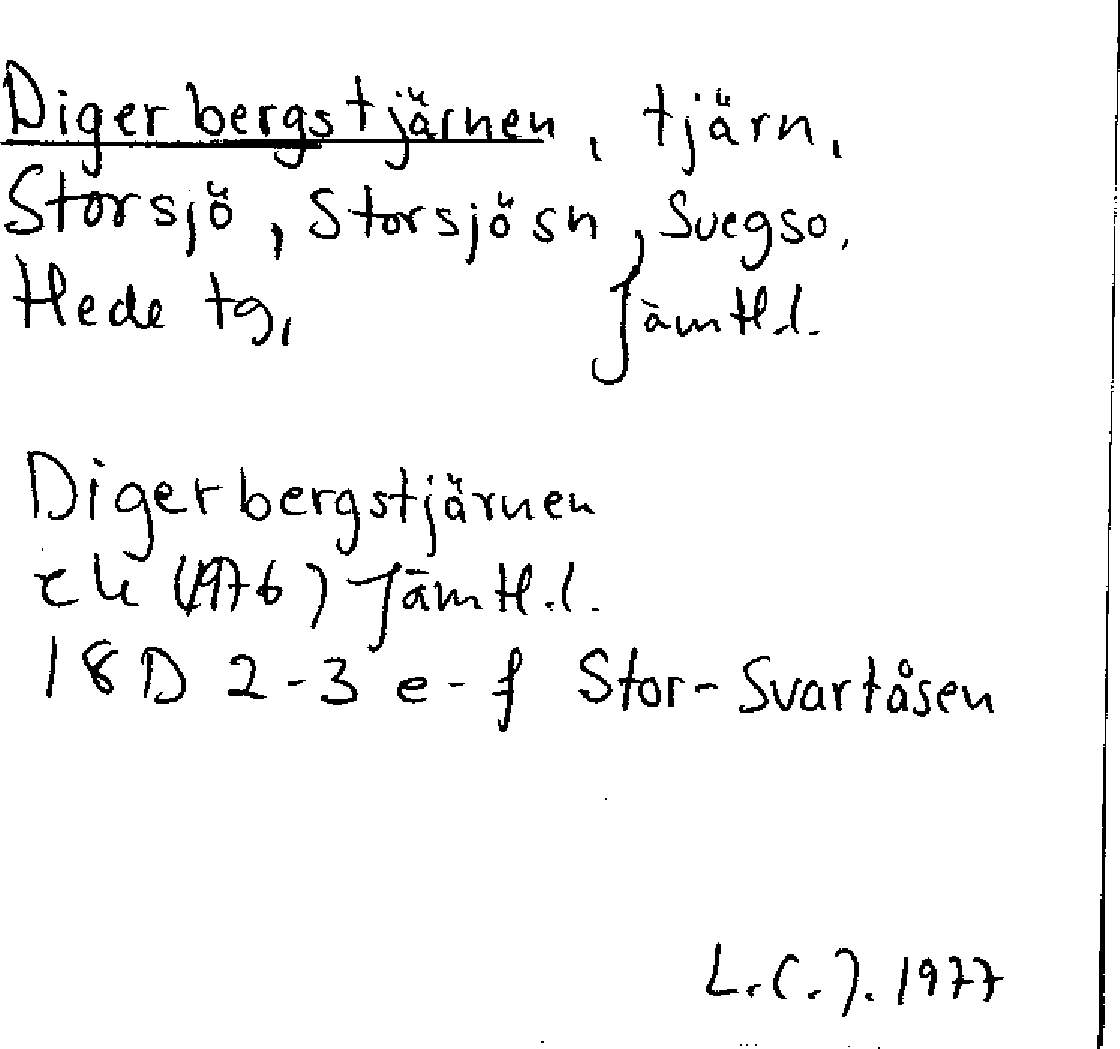 Digerbergstjärnen, tjärn,
Storsjö, Storsjösn, Svegso,
Hede tg, Jämtl.l.
Digerbergstjärnen
ek (1976) Jämtl.l.
18D 2-3 e-f Stor-Svartåsen
L.C.J. 1977